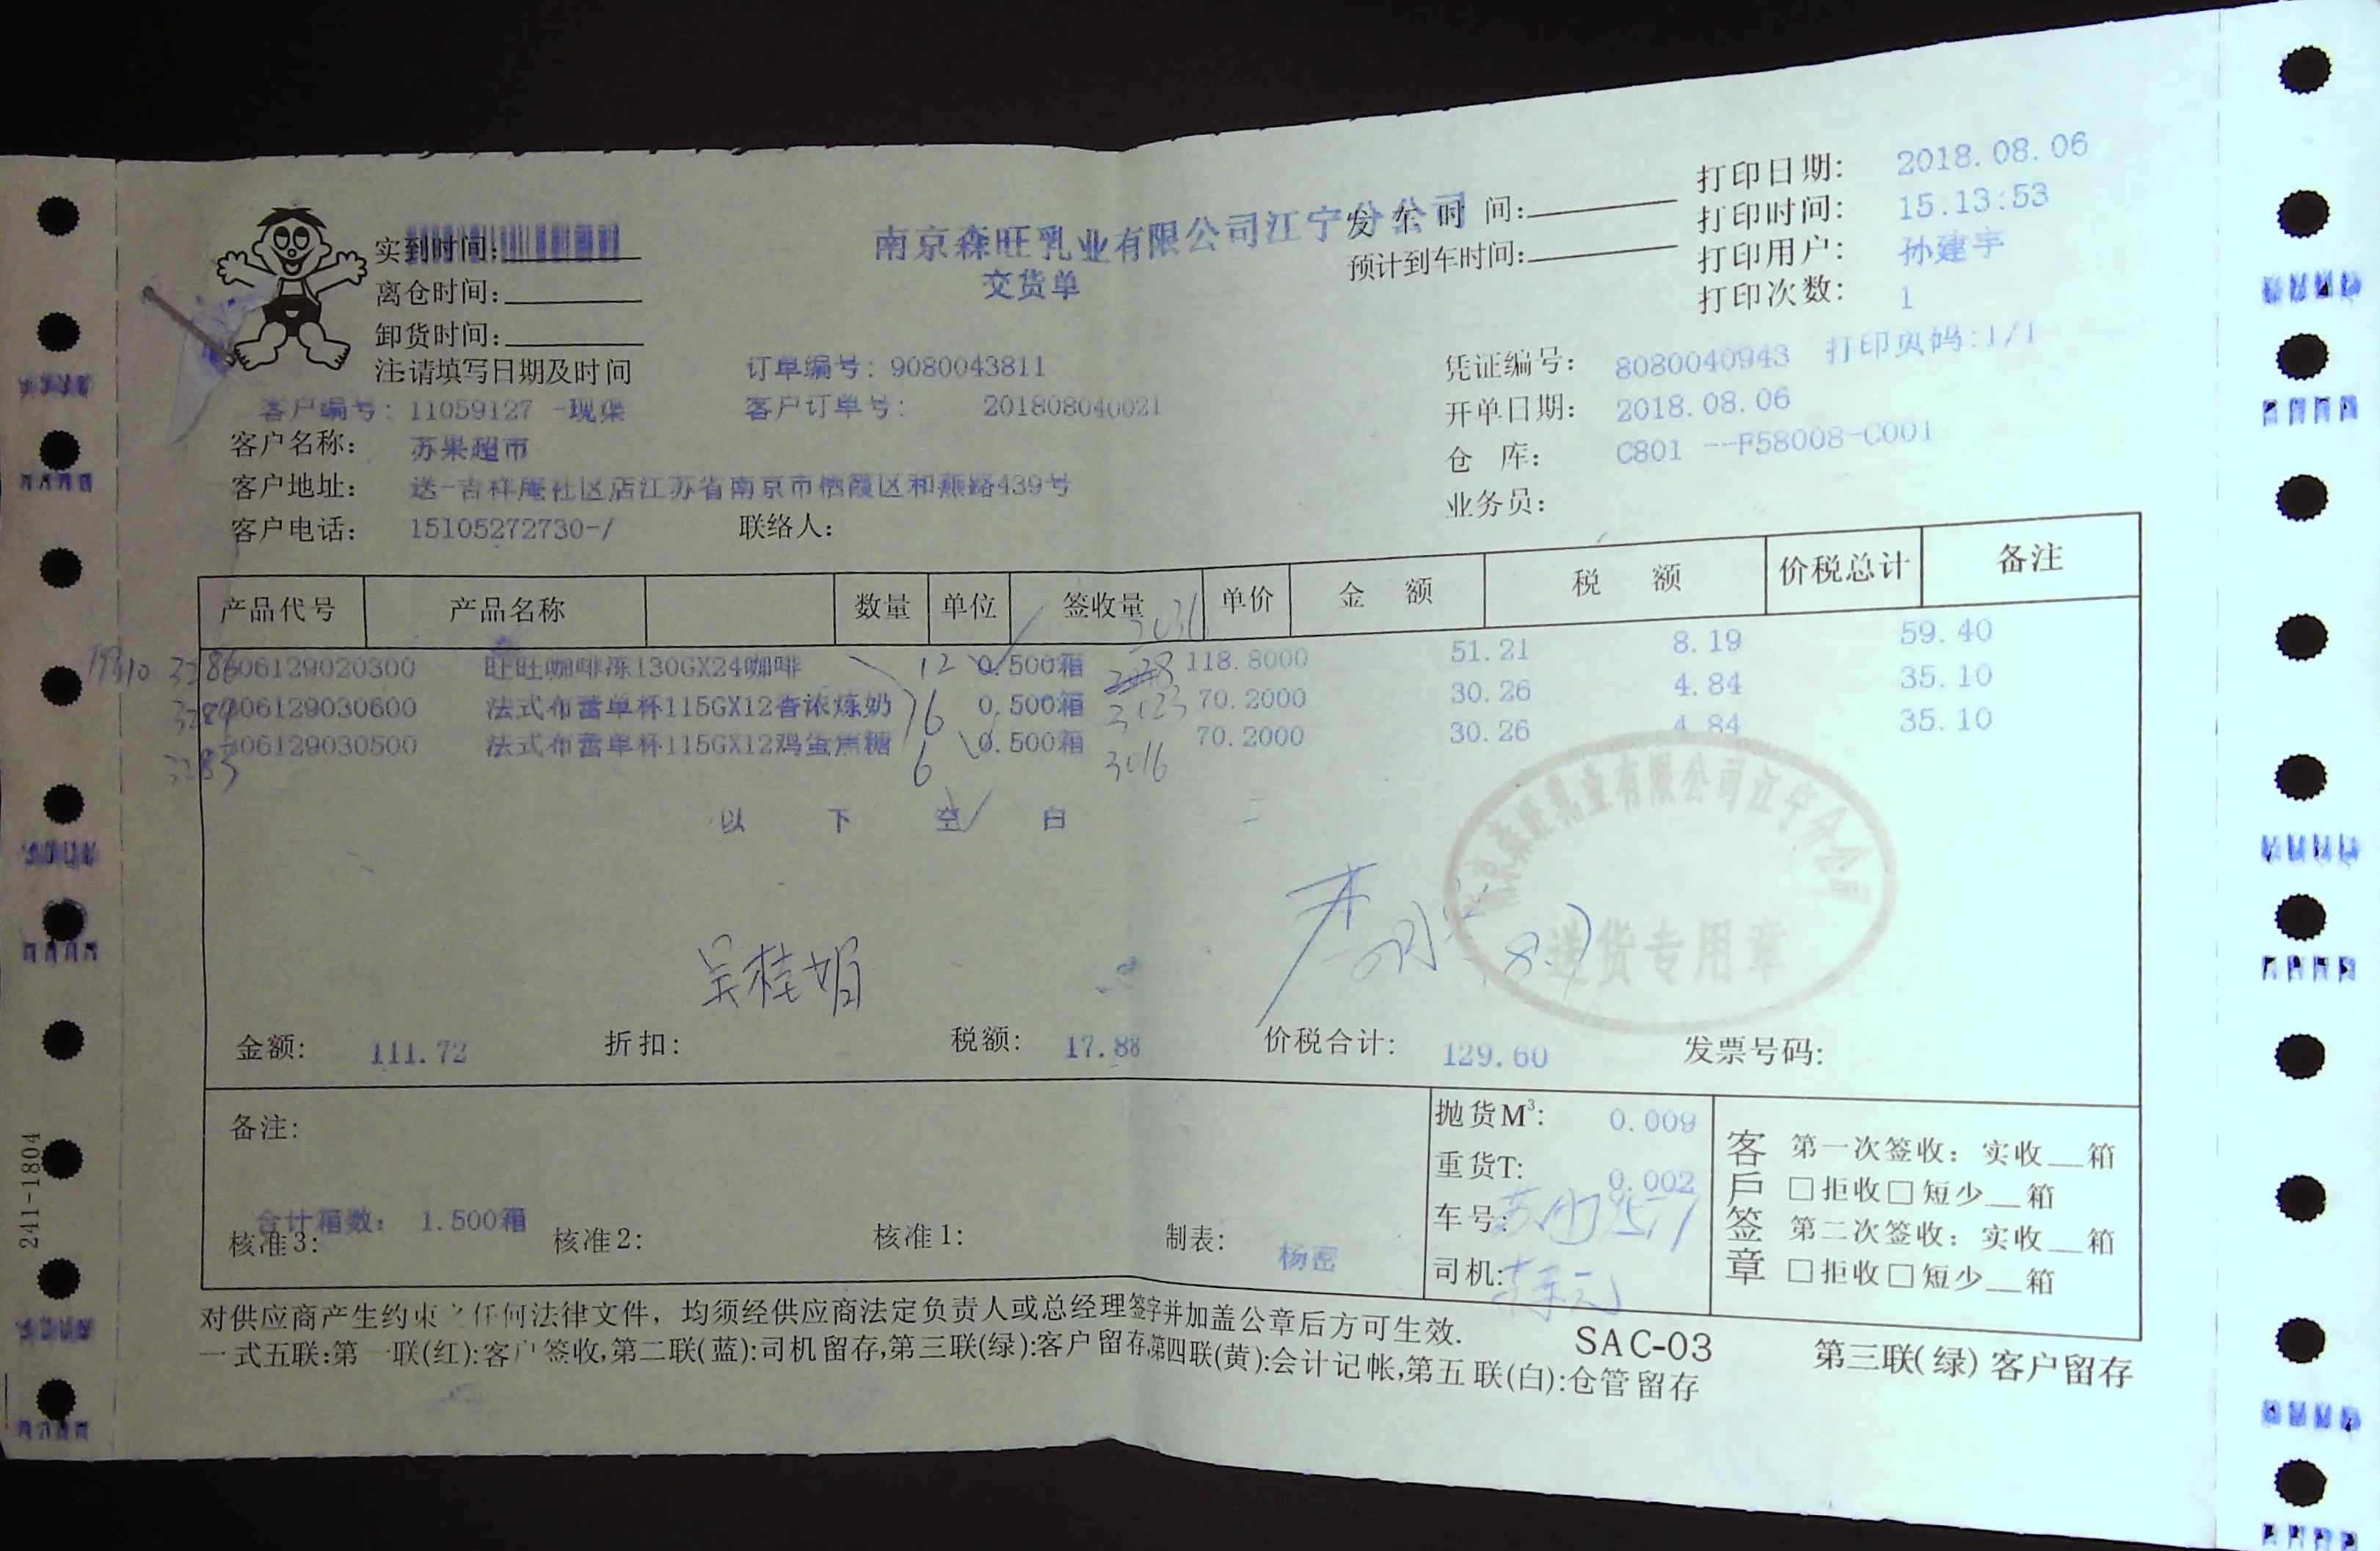 南京森旺乳业有限公司江宁分公司
交货单
实到时间:
离仓时间:
卸货时间:
注:请填写日期及时间
发车时 间:
预计到车时间:
打印日期: 2018.08.06
打印时间: 15:13:53
打印用户: 孙建宇
打印次数: 1
订单编号: 9080043811
凭证编号: 8080040943 打印页码:1/1
客户编号: 11059127 -现渠 客户订单号: 201808040021
开单日期: 2018.08.06
客户名称: 苏果超市
仓 库: C801 --F58008-C001
客户地址: 送-吉祥庵社区店江苏省南京市栖霞区和燕路439号
业务员:
客户电话: 15105272730-/ 联络人:
产品代号 产品名称 数量 单位 签收量 单价 金 额 税 额 价税总计 备注
3286 06129020300 旺旺咖啡冻130GX24咖啡 12 0.500箱 3031 118.8000 51.21 8.19 59.40
06129030600 法式布蕾单杯115GX12香浓炼奶 6 0.500箱 3023 70.2000 30.26 4.84 35.10
3285 06129030500 法式布蕾单杯115GX12鸡蛋焦糖 6 0.500箱 3016 70.2000 30.26 4.84 35.10
以 下 空 白
南京森旺乳业有限公司江宁分公司
送货专用章
吴桂娟
8.7
金额: 111.72 折扣: 税额: 17.88 价税合计: 129.60 发票号码:
备注:
抛货M³: 0.009
重货T: 0.002
车号:
司机:
合计箱数: 1.500箱
核准3: 核准2: 核准1: 制表: 杨密
客戶签章
第一次签收: 实收__箱
□拒收□短少__箱
第二次签收: 实收__箱
□拒收□短少__箱
对供应商产生约束之任何法律文件, 均须经供应商法定负责人或总经理签字并加盖公章后方可生效.
一式五联:第一联(红):客户签收,第二联(蓝):司机留存,第三联(绿):客户留存,第四联(黄):会计记帐,第五联(白):仓管留存
SAC-03
第三联(绿) 客户留存
241-1804